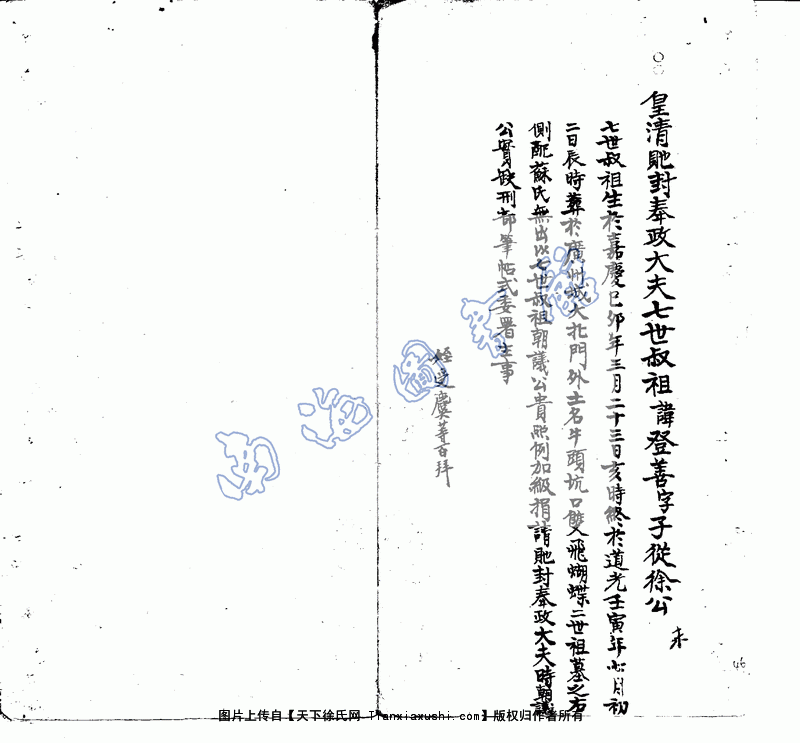 皇清貤封奉政大夫七世叔祖諱登善字子從徐公
未
七世叔祖生於嘉慶己卯年三月二十三日亥時終於道光壬寅年七月初
二日辰時葬於廣州城大北門外土名牛頭坑口雙飛蝴蝶二世祖墓之右
側配蘇氏無出以七世叔祖朝議公貴照例加級捐請貤封奉政大夫時朝議
公實缺刑部筆帖式委署主事
姪受麇等百拜
46
图片上传自【天下徐氏网 Tianxiaxushi.com】版权归作者所有